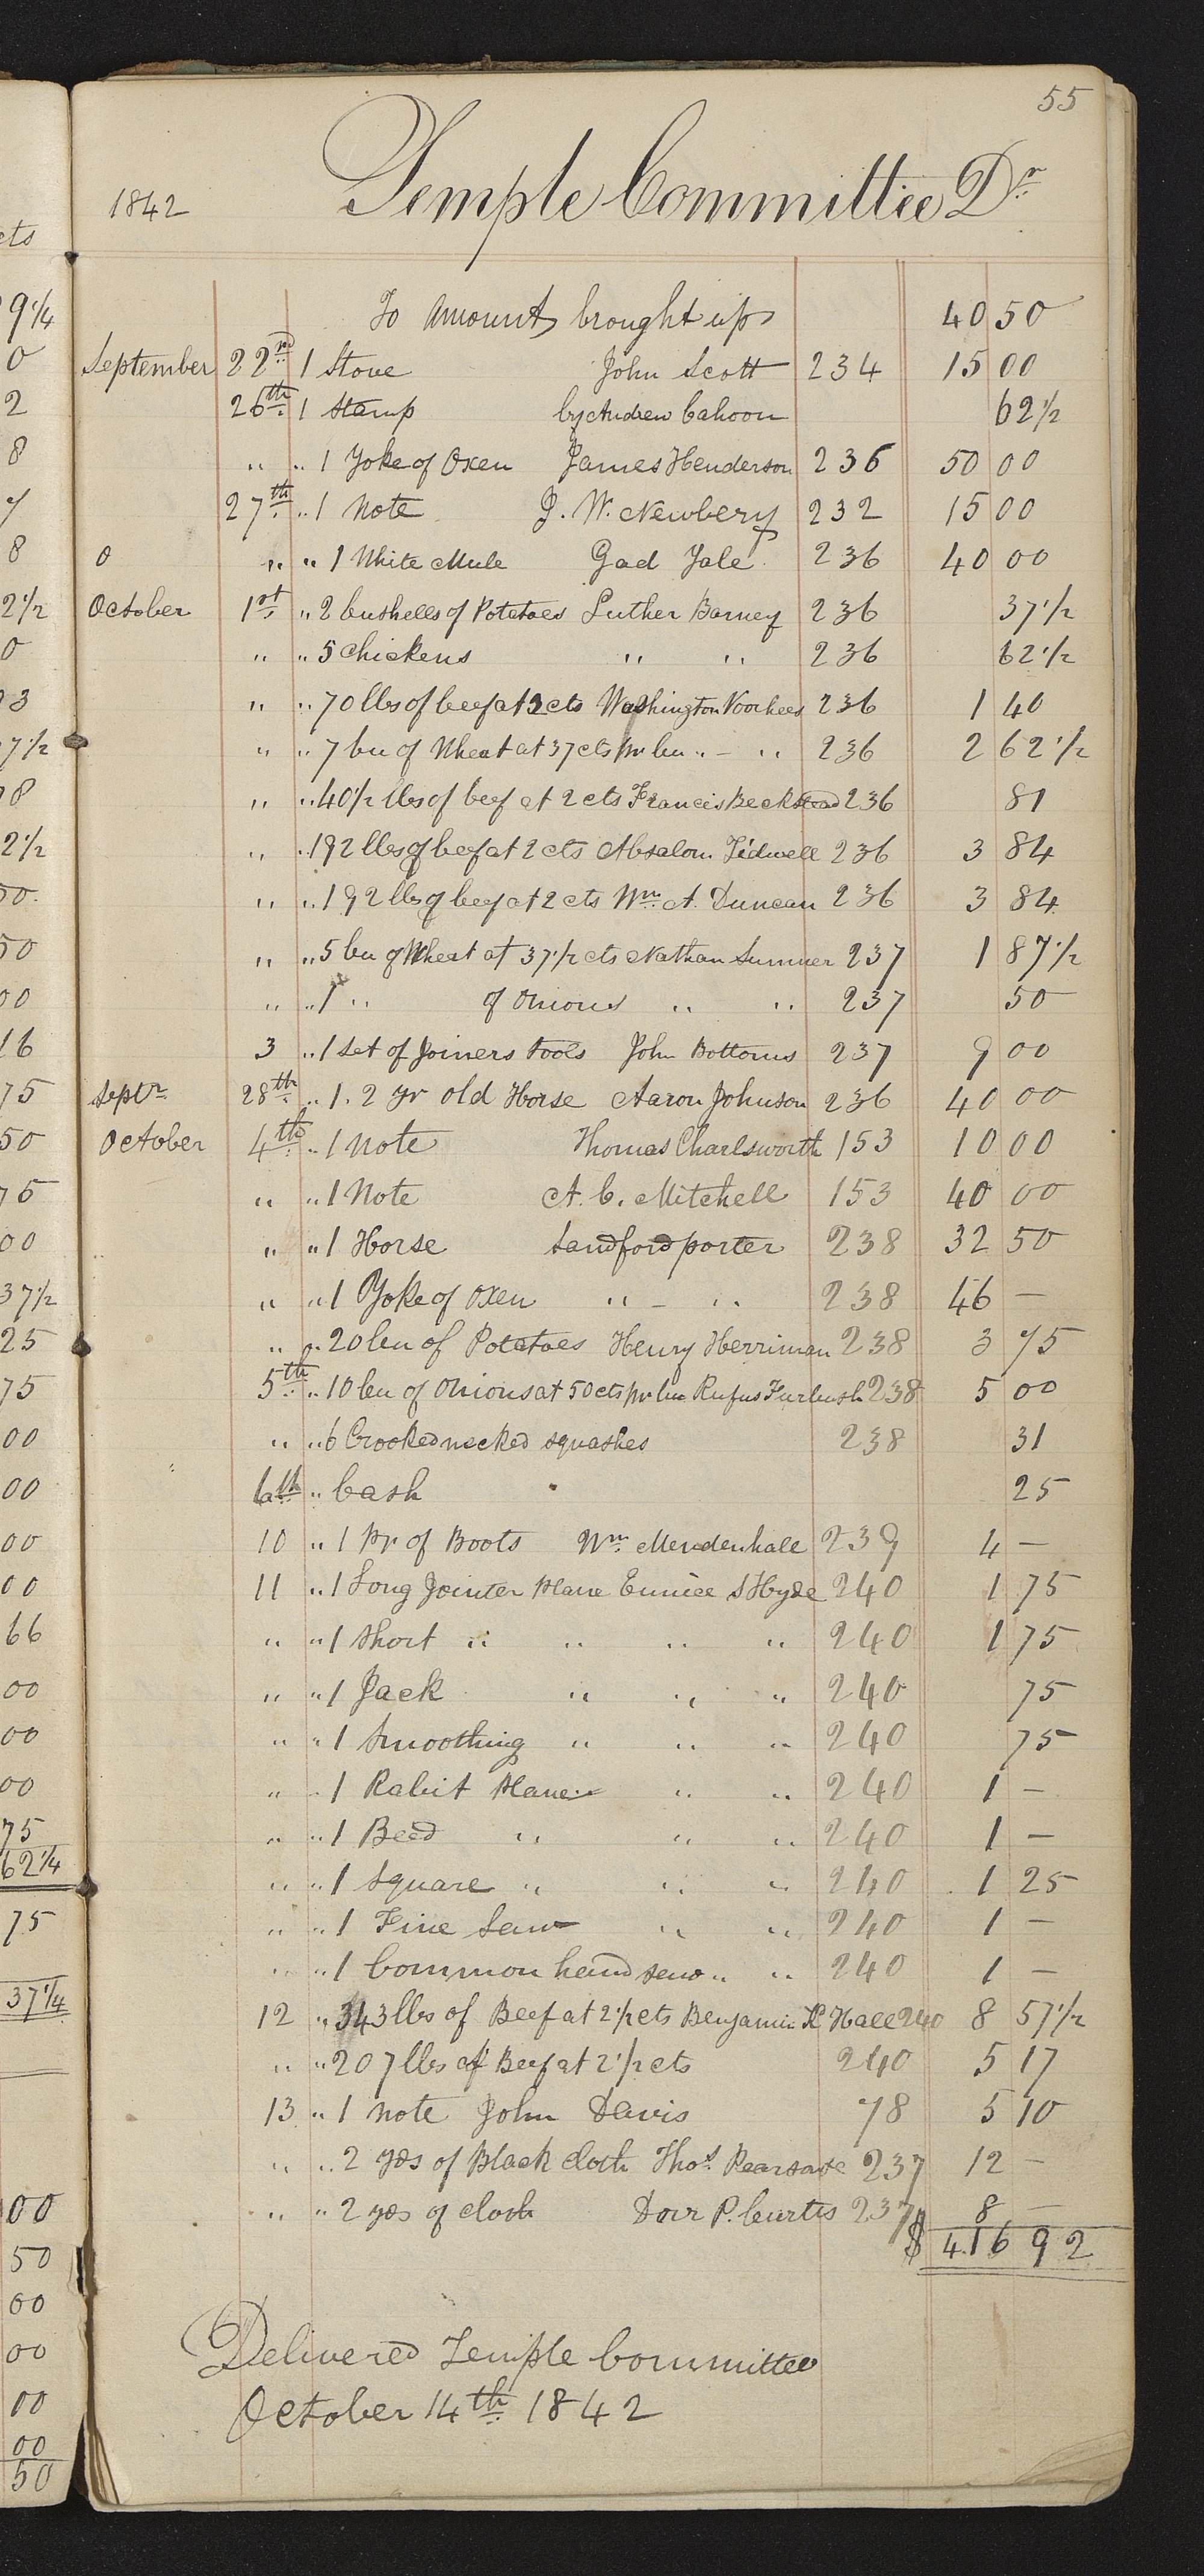 55
1842 Temple Committee Dr
To Amount brought up 40 50
September 22nd 1 Stove John Scott 234 15 00
26th 1 Stamp by Andrew Cahoon 62 1/2
" " 1 Yoke of Oxen James Henderson 236 50 00
27th " 1 Note J. W. Newbery 232 15 00
0 " " 1 White Mule Gad Yale 236 40 00
October 1st " 2 bushells of Potatoes Luther Barney 236 37 1/2
" " 5 Chickens " " 236 62 1/2
" " 70 lbs of beef at 2 cts Washington Voorhees 236 1 40
" " 7 bu of Wheat at 37 cts pr bu " — " 236 2 62 1/2
" " 40 1/2 lbs of beef at 2 cts Francis Beckstead 236 81
" " 192 lbs of beef at 2 cts Absalom Tidwell 236 3 84
" " 192 lbs of beef at 2 cts Wm. A. Duncan 236 3 84
" " 5 bu of Wheat at 37 1/2 cts Nathan Sumner 237 1 87 1/2
" " 1 " of Onions " " 237 50
3 " 1 Set of Joiners tools John Bottoms 237 9 00
Septr. 28th " 1. 2 yr old Horse Aaron Johnson 236 40 00
October 4th " 1 Note Thomas Charlsworth 153 10 00
" " 1 Note A. C. Mitchell 153 40 00
" " 1 Horse Sandford porter 238 32 50
" " 1 Yoke of Oxen " — " 238 46 —
" " 20 bu of Potatoes Henry Herriman 238 3 75
5th " 10 bu of Onions at 50 cts pr bu Rufus Furbush 238 5 00
" " 6 Crookednecked squashes 238 31
6th " Cash 25
10 " 1 pr of Boots Wm. Mendenhall 239 4 —
11 " 1 Long Jointer Plane Eunice S Hyde 240 1 75
" " 1 Short " " " " 240 1 75
" " 1 Jack " " " 240 75
" " 1 Smoothing " " " 240 75
" " 1 Rabit Plane " " 240 1 —
" " 1 Bead " " " 240 1 —
" " 1 Square " " " 240 1 25
" " 1 Fine Saw " " 240 1 —
" " 1 Common hand saw " " 240 1 —
12 " 343 lbs of Beef at 2 1/2 cts Benjamin K Hall 240 8 57 1/2
" " 207 lbs of Beef at 2 1/2 cts 240 5 17
13 " 1 note John Davis 78 5 10
" " 2 yds of Black cloth Thos. 237 12 —
" " 2 yds of cloth Dorr P. Curtis 237 8 —
$ 416 92
Delivered Temple Committee
October 14th 1842
cts
9 1/4
0
2
8
7
8
2 1/2
0
3
7 1/2
8
2 1/2
50.
50
00
16
75
50
75
00
37 1/2
25
75
00
00
00
00
66
00
00
00
75
62 1/4
75
37 1/4
00
50
00
00
00
00
50